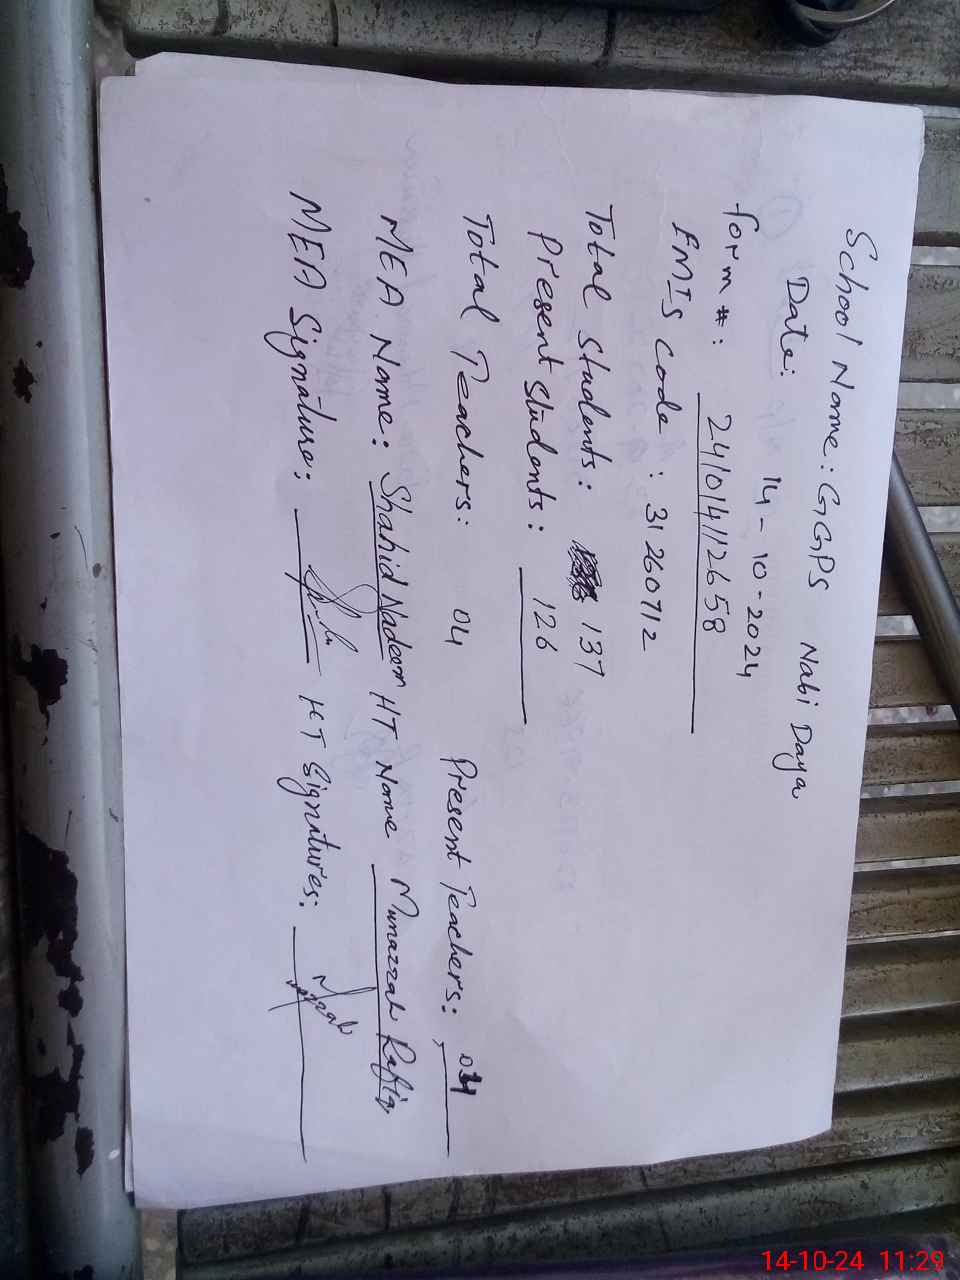 School Name: GGPS Nabi Daya
Date: 14-10-2024
form #: 241014112658
EMIS code : 31260712
Total Students: 137
Present Students: 126
Total Teachers: 04 Present Teachers: 04
MEA Name: Shahid Nadeem HT Name Munazzah Rafiq
MEA Signature: HT Signitures:
14-10-24 11:29